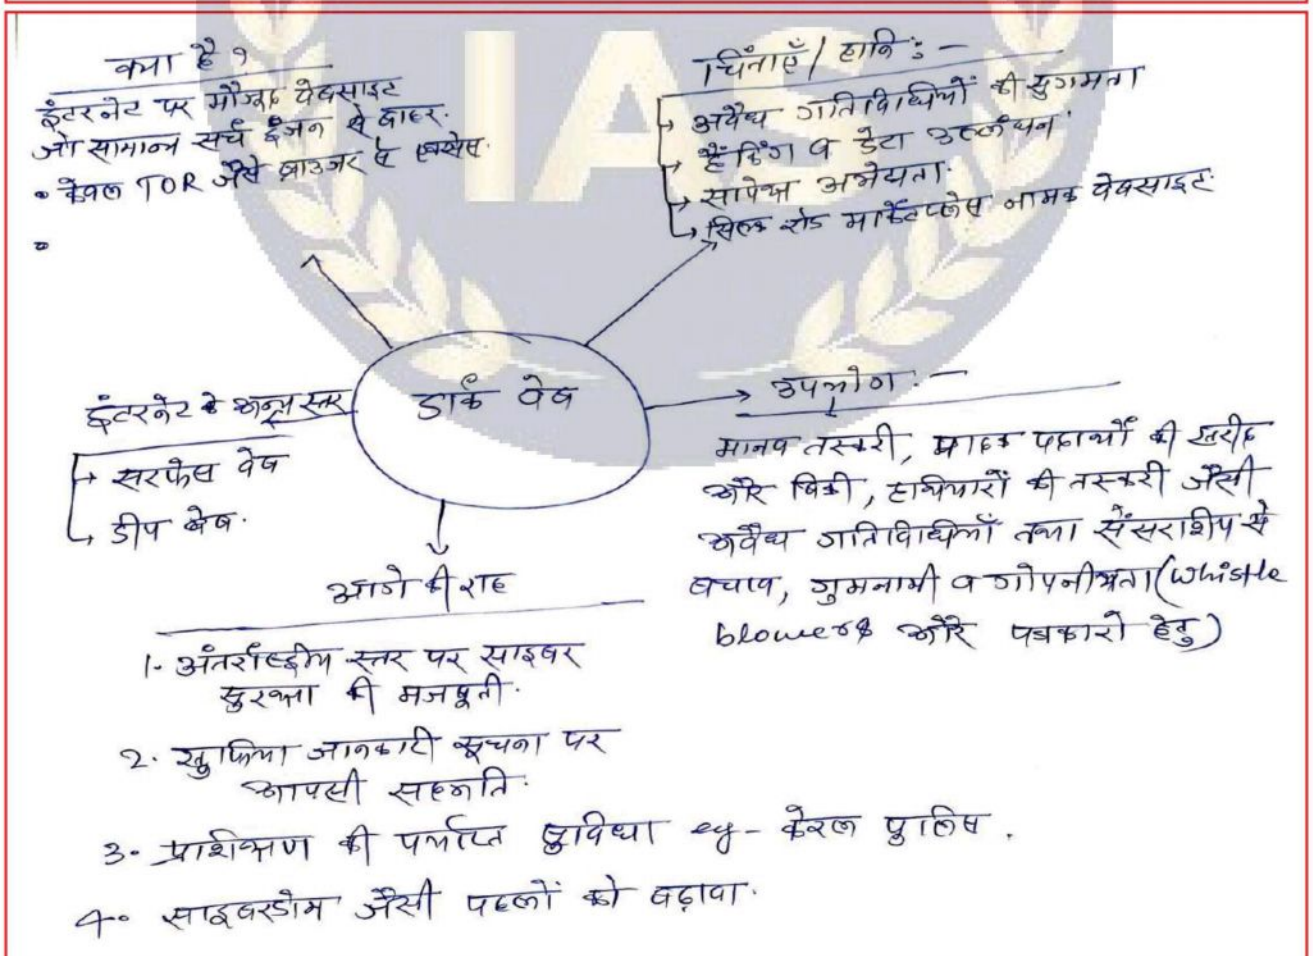 IAS
क्या है ?
इंटरनेट पर मौजूद वेबसाइट
जो सामान्य सर्च इंजन से बाहर.
• केवल TOR जैसे ब्राउजर से एक्सेस.
•
चिंताएँ / हानि : –
→ अवैध गतिविधियों की सुगमता
→ हैकिंग व डेटा उल्लंघन
→ सापेक्ष अभेद्यता.
→ सिल्क रोड मार्केटप्लेस नामक वेबसाइट.
डार्क वेब
इंटरनेट के अन्य स्तर
→ सरफेस वेब
→ डीप वेब.
उपयोग : –
मानव तस्करी, मादक पदार्थों की खरीद
और बिक्री, हथियारों की तस्करी जैसी
अवैध गतिविधियाँ तथा सेंसरशिप से
बचाव, गुमनामी व गोपनीयता (Whistle
blowers और पत्रकारो हेतु)
आगे की राह
1. अंतर्राष्ट्रीय स्तर पर साइबर
सुरक्षा की मजबूती.
2. खुफिया जानकारी सूचना पर
आपसी सहमति.
3. प्रशिक्षण की पर्याप्त सुविधा eg – केरल पुलिस .
4. साइबरडोम जैसी पहलों को बढ़ावा.